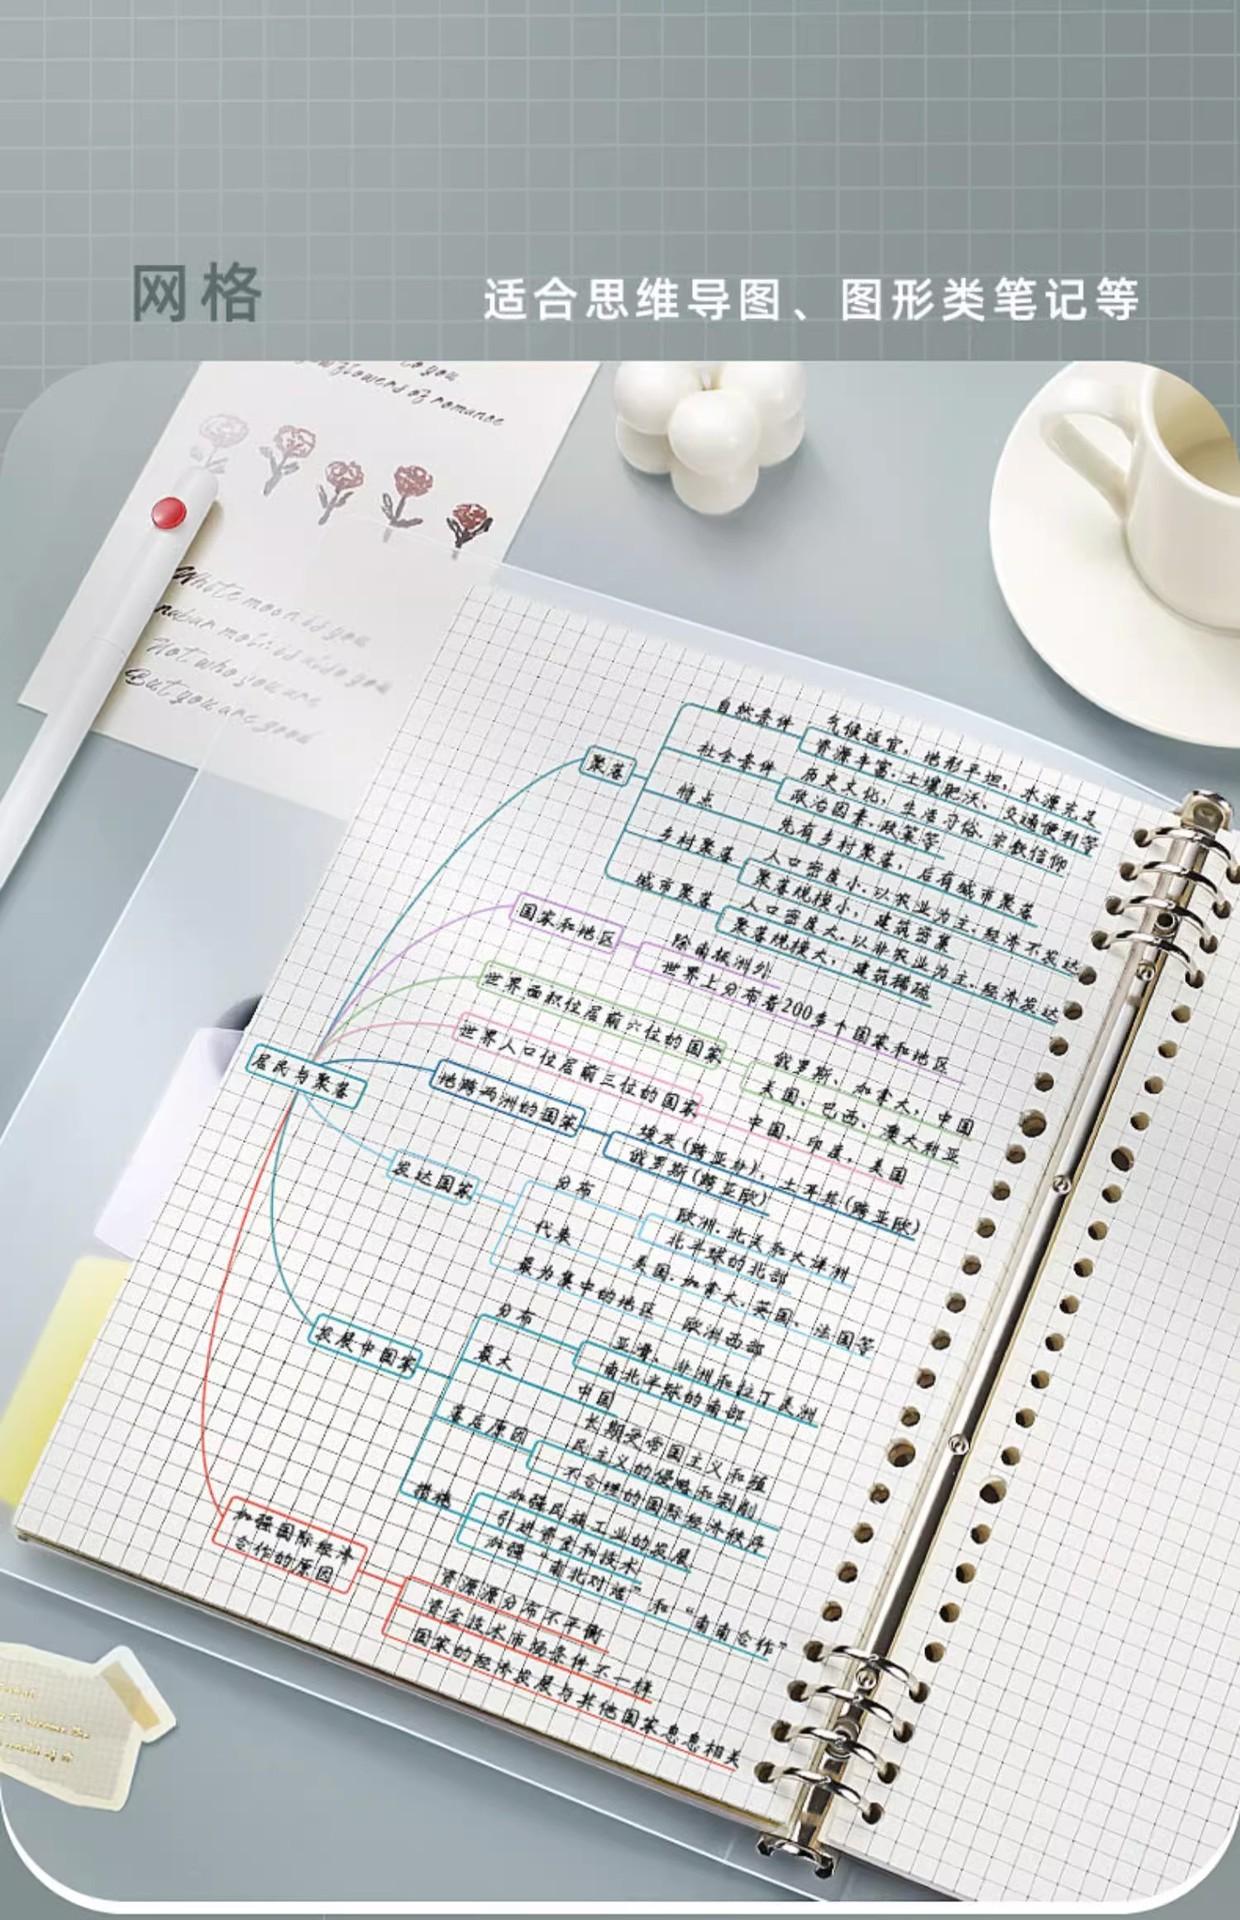 网格
适合思维导图、图形类笔记等
to you
flowers of romance
White moon is you
Not who you are
But you are good
居民与聚落
聚落
自然条件
气候适宜，地形平坦，水源充足
资源丰富，土壤肥沃，交通便利等
社会条件
历史文化，生活习俗，宗教信仰
政治因素，政策等
特点
先有乡村聚落，后有城市聚落
乡村聚落
人口密度小，以农业为主，经济不发达
聚落规模小，建筑密集
城市聚落
人口密度大，以非农业为主，经济发达
聚落规模大，建筑稀疏
国家和地区
除南极洲外
世界上分布着200多个国家和地区
世界面积位居前六位的国家
俄罗斯、加拿大，中国
美国、巴西、澳大利亚
世界人口位居前三位的国家
中国，印度，美国
地跨两洲的国家
埃及(跨亚非)，土耳其(跨亚欧)
俄罗斯(跨亚欧)
发达国家
分布
欧洲，北美和大洋洲
北半球的北部
代表
美国，加拿大，英国、法国等
最为集中的地区
欧洲西部
发展中国家
分布
亚洲、非洲和拉丁美洲
南北半球的南部
最大
中国
落后原因
长期受帝国主义和殖
民主义的侵略和剥削
不合理的国际经济秩序
措施
加强民族工业的发展
引进资金和技术
加强“南北对话”和“南南合作”
加强国际经济
合作的原因
资源源分布不平衡
资金技术市场条件不一样
国家的经济发展与其他国家息息相关